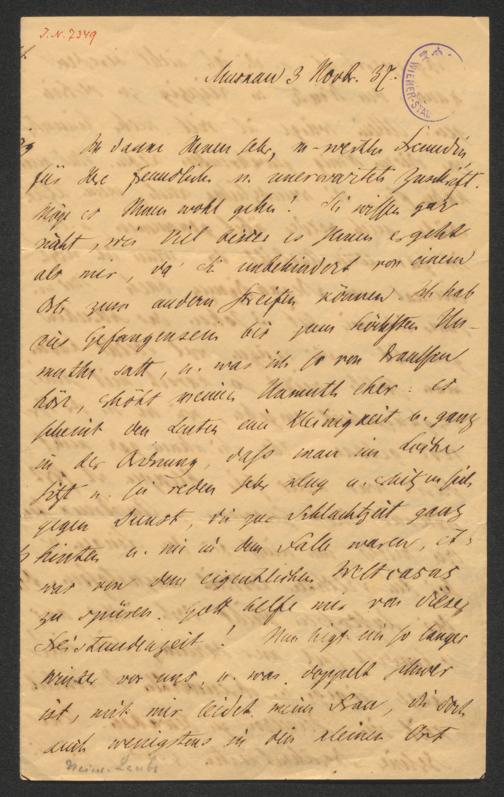 J.N. 7349
Murnau 3 Novbr. 37.
WIENER-STAD
Ich danke Ihnen sehr, werthe Freundin
für Ihre freundliche u. unerwartete Zuschrift.
Möge es Ihnen wohl gehen! Sie wissen gar
nicht, wie viel besser es Ihnen ergeht
als mir, da Sie unbehindert von einem
Ort zum andern streifen können. Ich hab
das Gefangensein bis zum höchsten Un-
muthe satt, u. was ich so von draussen
hör, erhöht meinen Unmuth eher: es
scheint den Leuten eine Kleinigkeit u. ganz
in der Ordnung, dass man im Loche
sitzt u. sie reden sehr klug u.
gegen die zur Schlachtzeit ganz
hinten u. nie in dem Falle waren, et-
was von dem eigentlichen
zu spüren. Gott helfe mir von dieser
! Nun liegt ein so langer
Winter vor uns, u. was doppelt schwer
ist, mit mir leidet meine Frau, die doch
auch wenigstens in den kleinen Ort